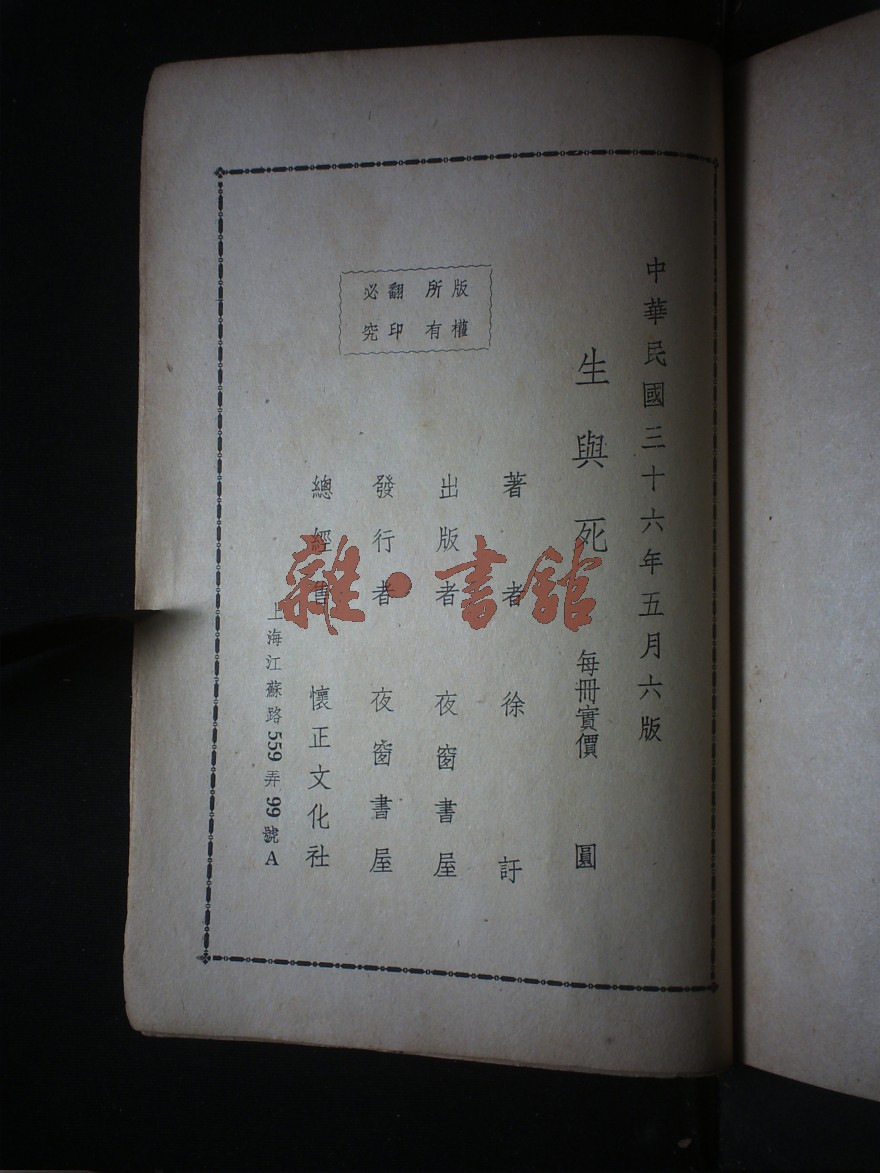 中華民國三十六年五月六版
生與死 每冊實價 圓
著者 徐訏
出版者 夜窗書屋
發行者 夜窗書屋
總經售 懷正文化社
上海江蘇路559弄99號A
版權所有
翻印必究
雜·書舘